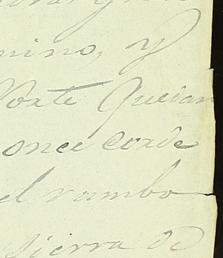 mino, y
Norte Quedan
once corde
el rumbo
Sierra de